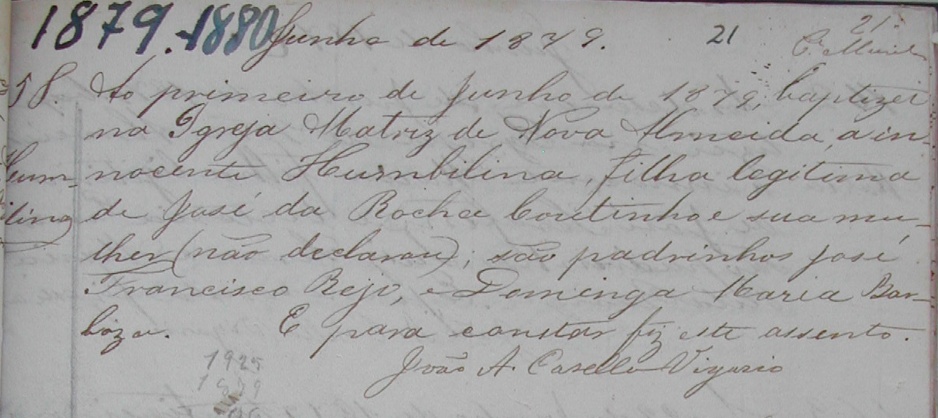 1879-1880 Junho de 1879. 21 21
58. Ao primeiro de Junho de 1879, baptizei
na Igreja Matriz de Nova Almeida, a in-
Hum- nocente Humbilina, filha legitima
ilina de José da Rocha Coutinho e sua mu-
lher (não declarou); são padrinhos José
Francisco Rejo, e Dominga Maria Bar-
boza. E para constar fiz este assento.
João A. Casella Vigario
1925
1879